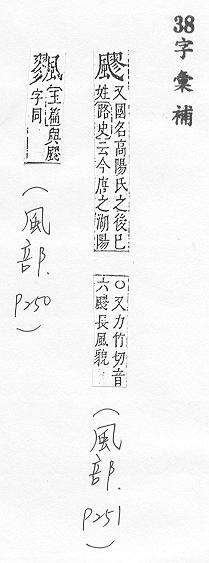 38字彙補
飂
又國名高陽氏之後巳
姓路史云今唐之湖陽
○又力竹切音
六飂長風貌
(風部.P251)
玉篇與飂
字同
(風部.P250)